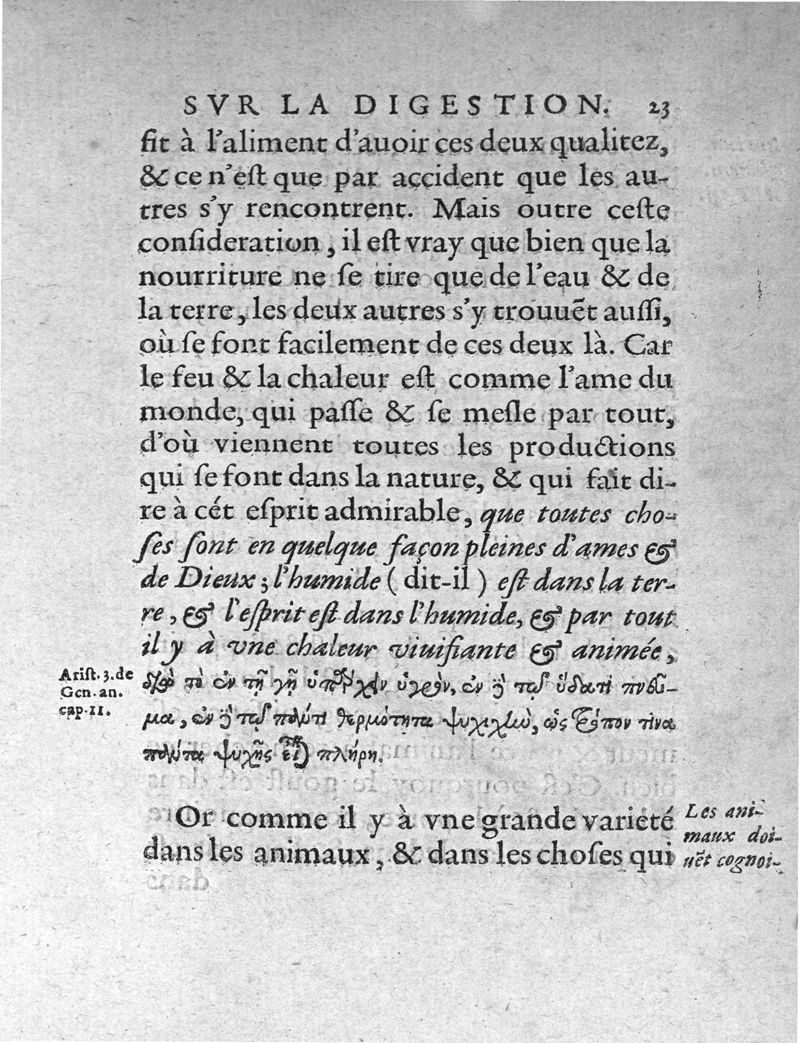 SVR LA DIGESTION. 23
fit à l'aliment d'auoir ces deux qualitez,
& ce n'eſt que par accident que les au-
tres s'y rencontrent. Mais outre ceſte
conſideration, il eſt vray que bien que la
nourriture ne ſe tire que de l'eau & de
la terre, les deux autres s'y trouuẽt auſſi,
où ſe font facilement de ces deux là. Car
le feu & la chaleur eſt comme l'ame du
monde, qui paſſe & ſe meſle par tout,
d'où viennent toutes les productions
qui ſe font dans la nature, & qui fait di-
re à cét eſprit admirable, que toutes cho-
ſes ſont en quelque façon pleines d'ames &
de Dieux; l'humide (dit-il) eſt dans la ter-
re, & l'eſprit eſt dans l'humide, & par tout
il y à vne chaleur viuifiante & animée,
Ariſt. 3. de
Gen. an.
cap. 11.
διὰ τὸ ἐν τῇ γῇ ὑπάρχειν ὑγρὸν, ἐν δὲ τῷ ὕδατι πνεῦ-
μα, ἐν δὲ τῷ παντὶ θερμότητα ψυχικὴν, ὡς τρόπον τινα
πάντα ψυχῆς εἶναι πλήρη.
Or comme il y à vne grande variété
dans les animaux, & dans les choſes qui
Les ani-
maux doi-
uẽt cognoi-